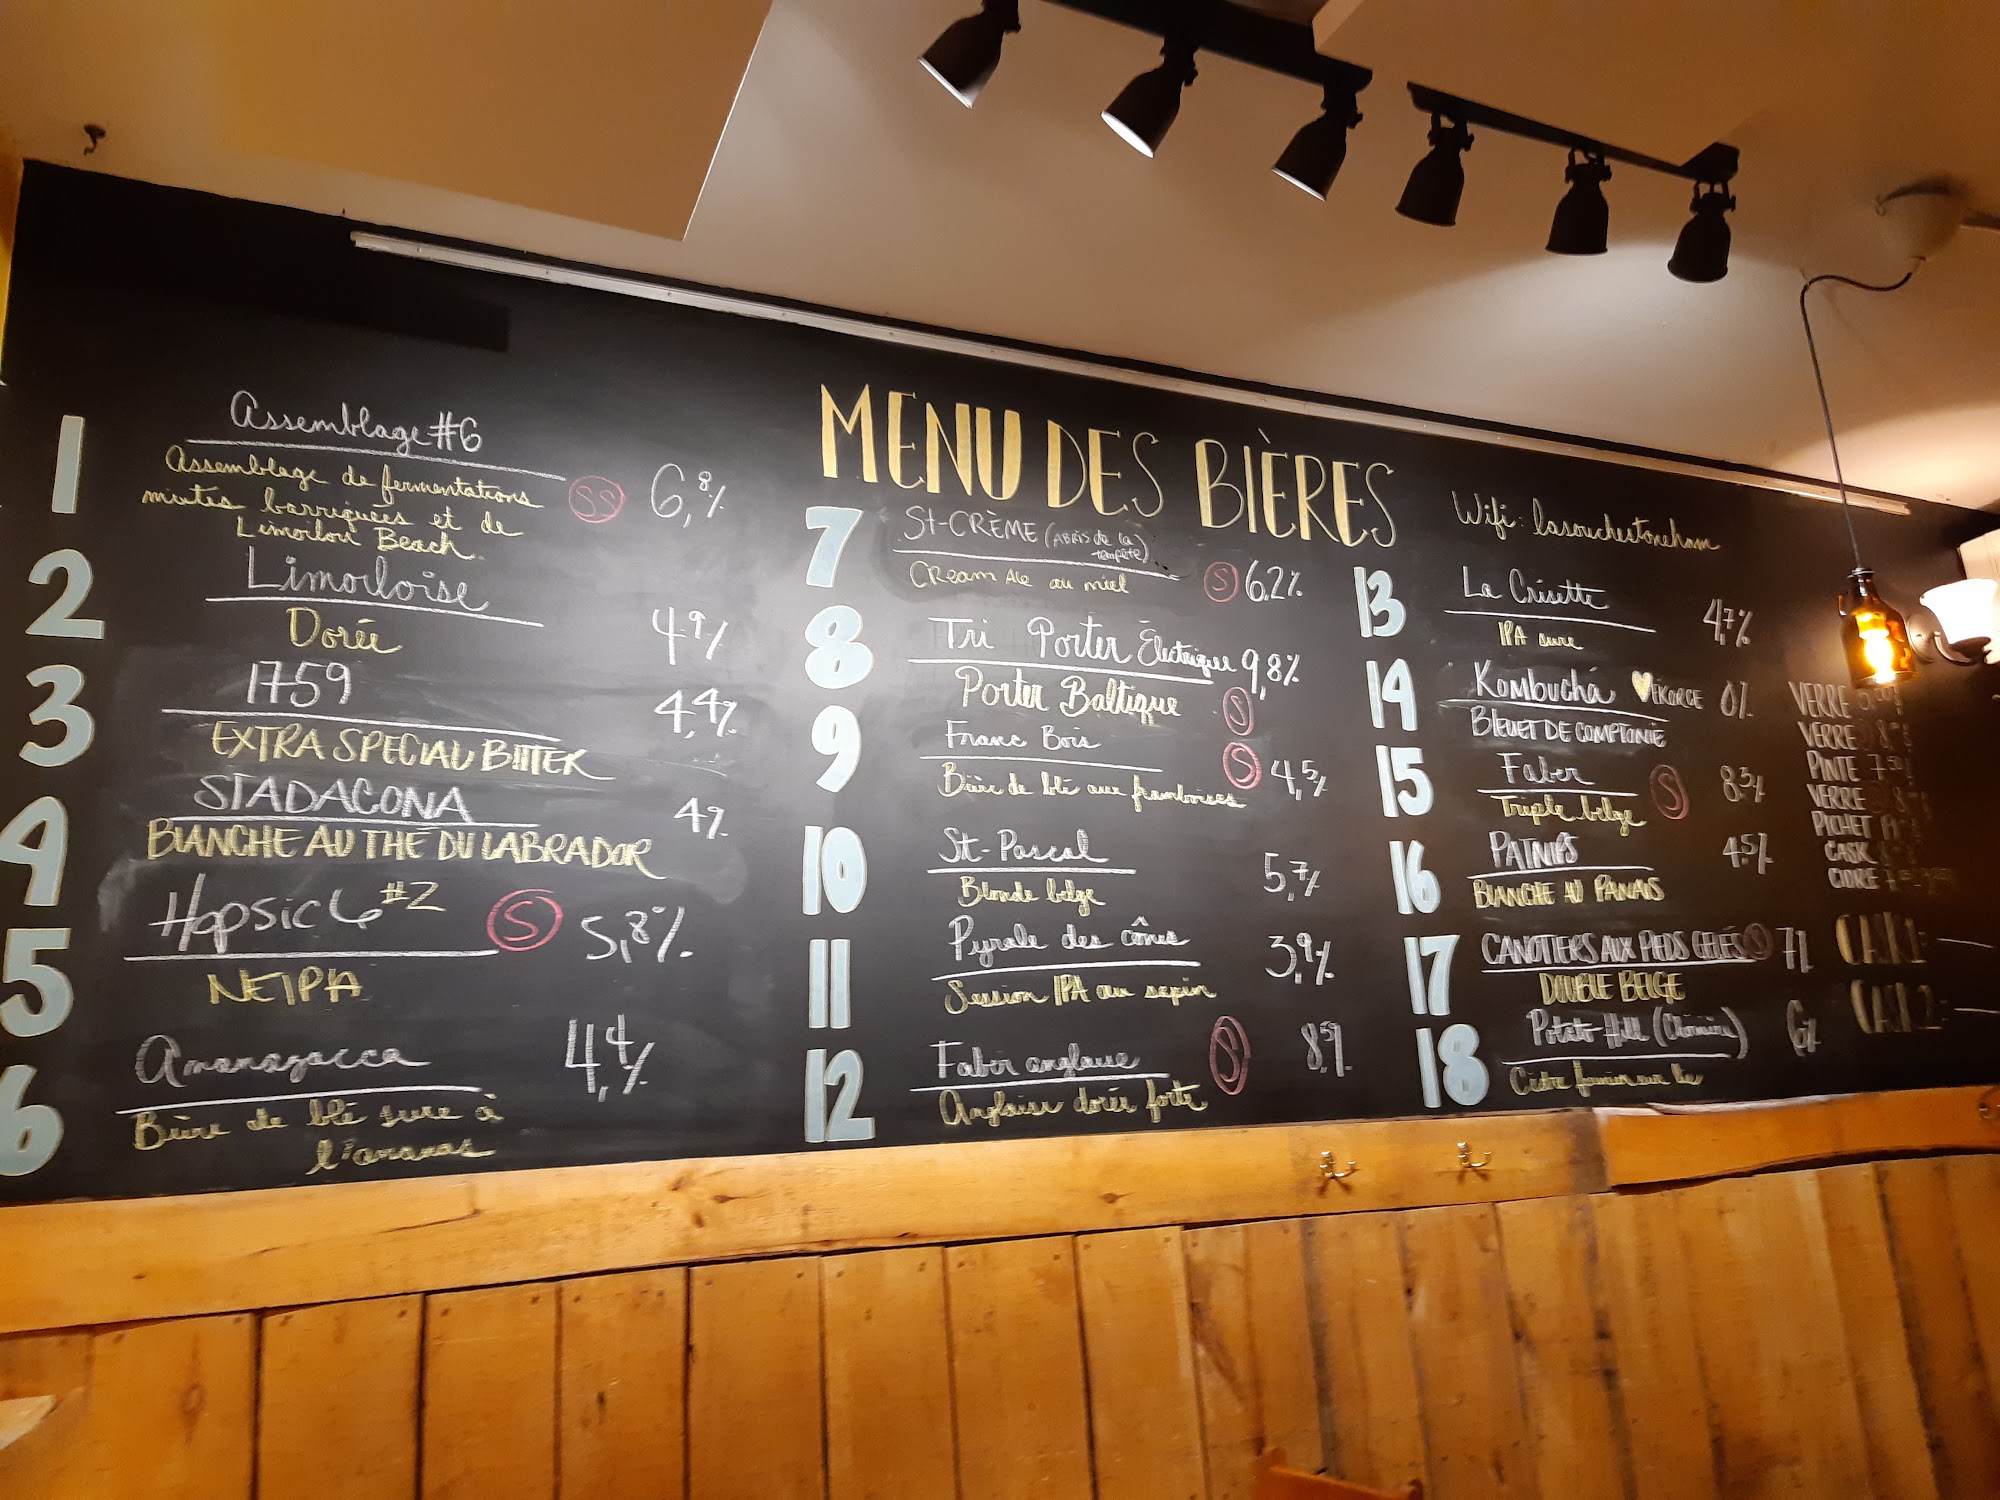 MENU DES BIÈRES
Wifi: lasouchestoneham
1
Assemblage #6
Assemblage de fermentations
mixtes barriquées et de
Limoilou Beach
SS
6,8%
2
Limoiloise
Dorée
4,9%
3
1759
EXTRA SPECIAL BITTER
4,4%
4
STADACONA
BLANCHE AU THÉ DU LABRADOR
4%
5
Hopsic 6 #2
NEIPA
S
5,8%
6
Amanazacca
Bière de blé sure à
l'ananas
4,4%
7
ST-CRÈME (ABRIS de la
tempête)
CREAM ALE au miel
S
6,2%
8
Tri Porter Électrique
Porter Baltique
9,8%
S
9
Franc Bois
Bière de blé aux framboises
S
4,5%
10
St-Pascal
Blonde belge
5,7%
11
Pyrale des cônes
Session IPA au sapin
3,9%
12
Faber anglaise
Anglaise dorée forte
S
8,5%
13
La Crisette
IPA sure
4,7%
14
KOMBUCHA
BLEUET DE COMPTONIE
0%
15
Faber
Triple belge
S
8,3%
16
PATNIPS
BLANCHE AU PANAIS
4,5%
17
CANOTIERS AUX PIEDS GELÉS
DOUBLE BELGE
S
7%
18
Potato Hill
Cidre fermier sur lie
6%
VERRE
VERRE
PINTE 7
VERRE
PICHET
CASK
CIDRE
CASK 1:
CASK 2: